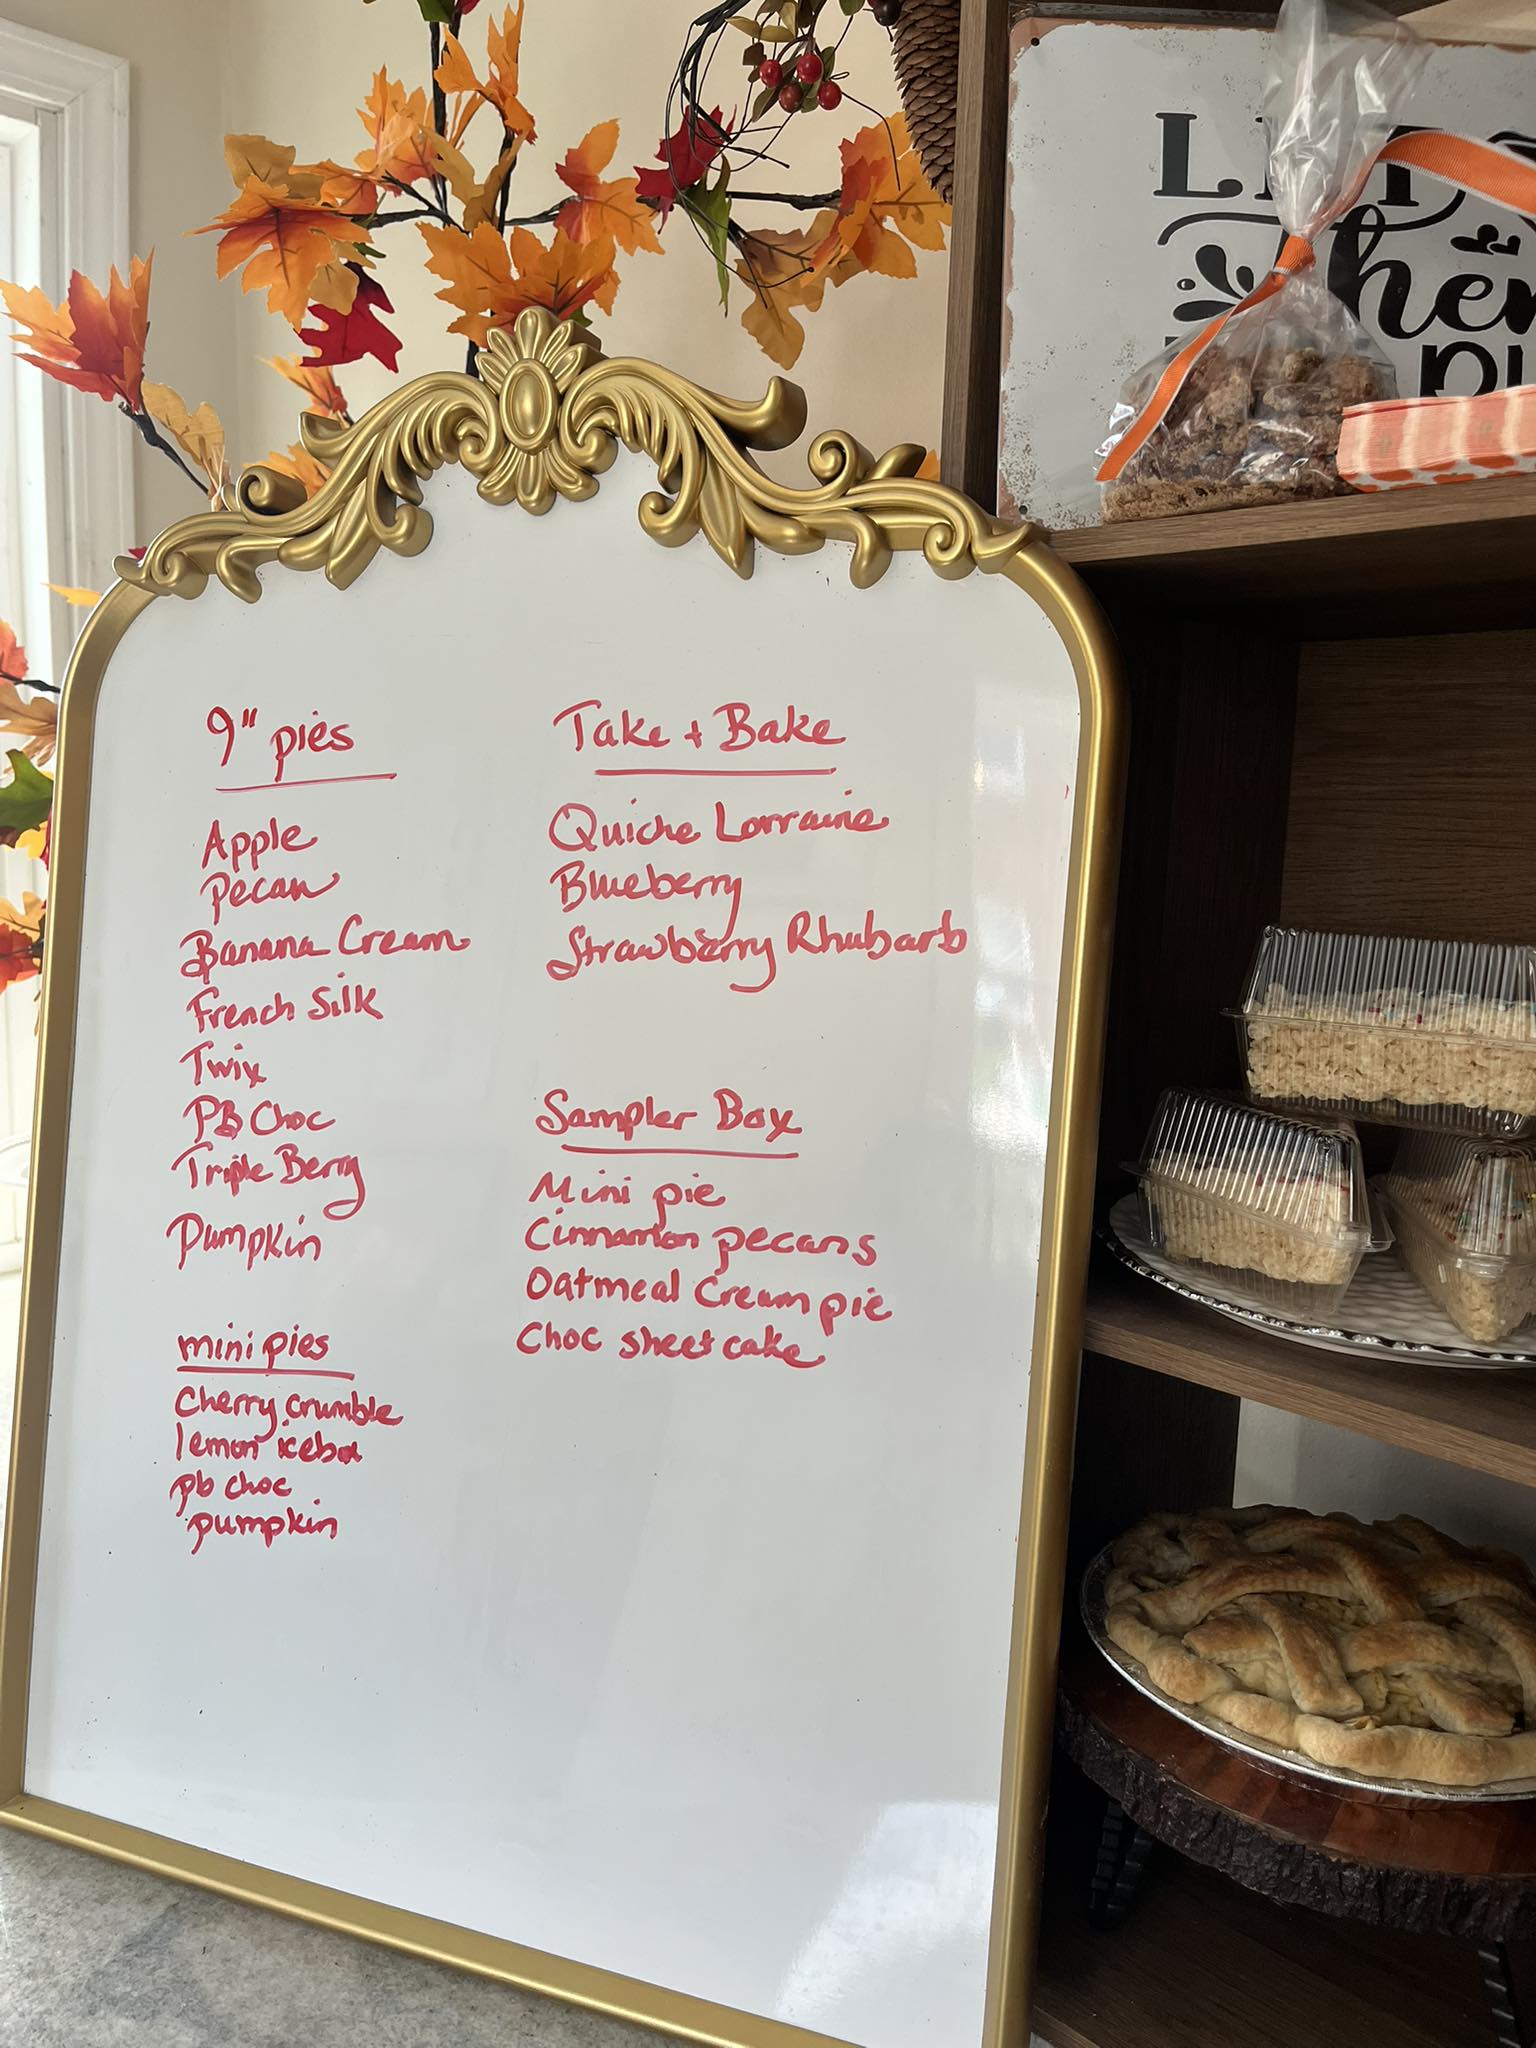 9" pies
Apple
Pecan
Banana Cream
French Silk
Twix
PB Choc
Triple Berry
Pumpkin
mini pies
Cherry crumble
lemon icebox
pb choc
pumpkin
Take + Bake
Quiche Lorraine
Blueberry
Strawberry Rhubarb
Sampler Box
Mini pie
Cinnamon pecans
Oatmeal Cream pie
Choc sheet cake